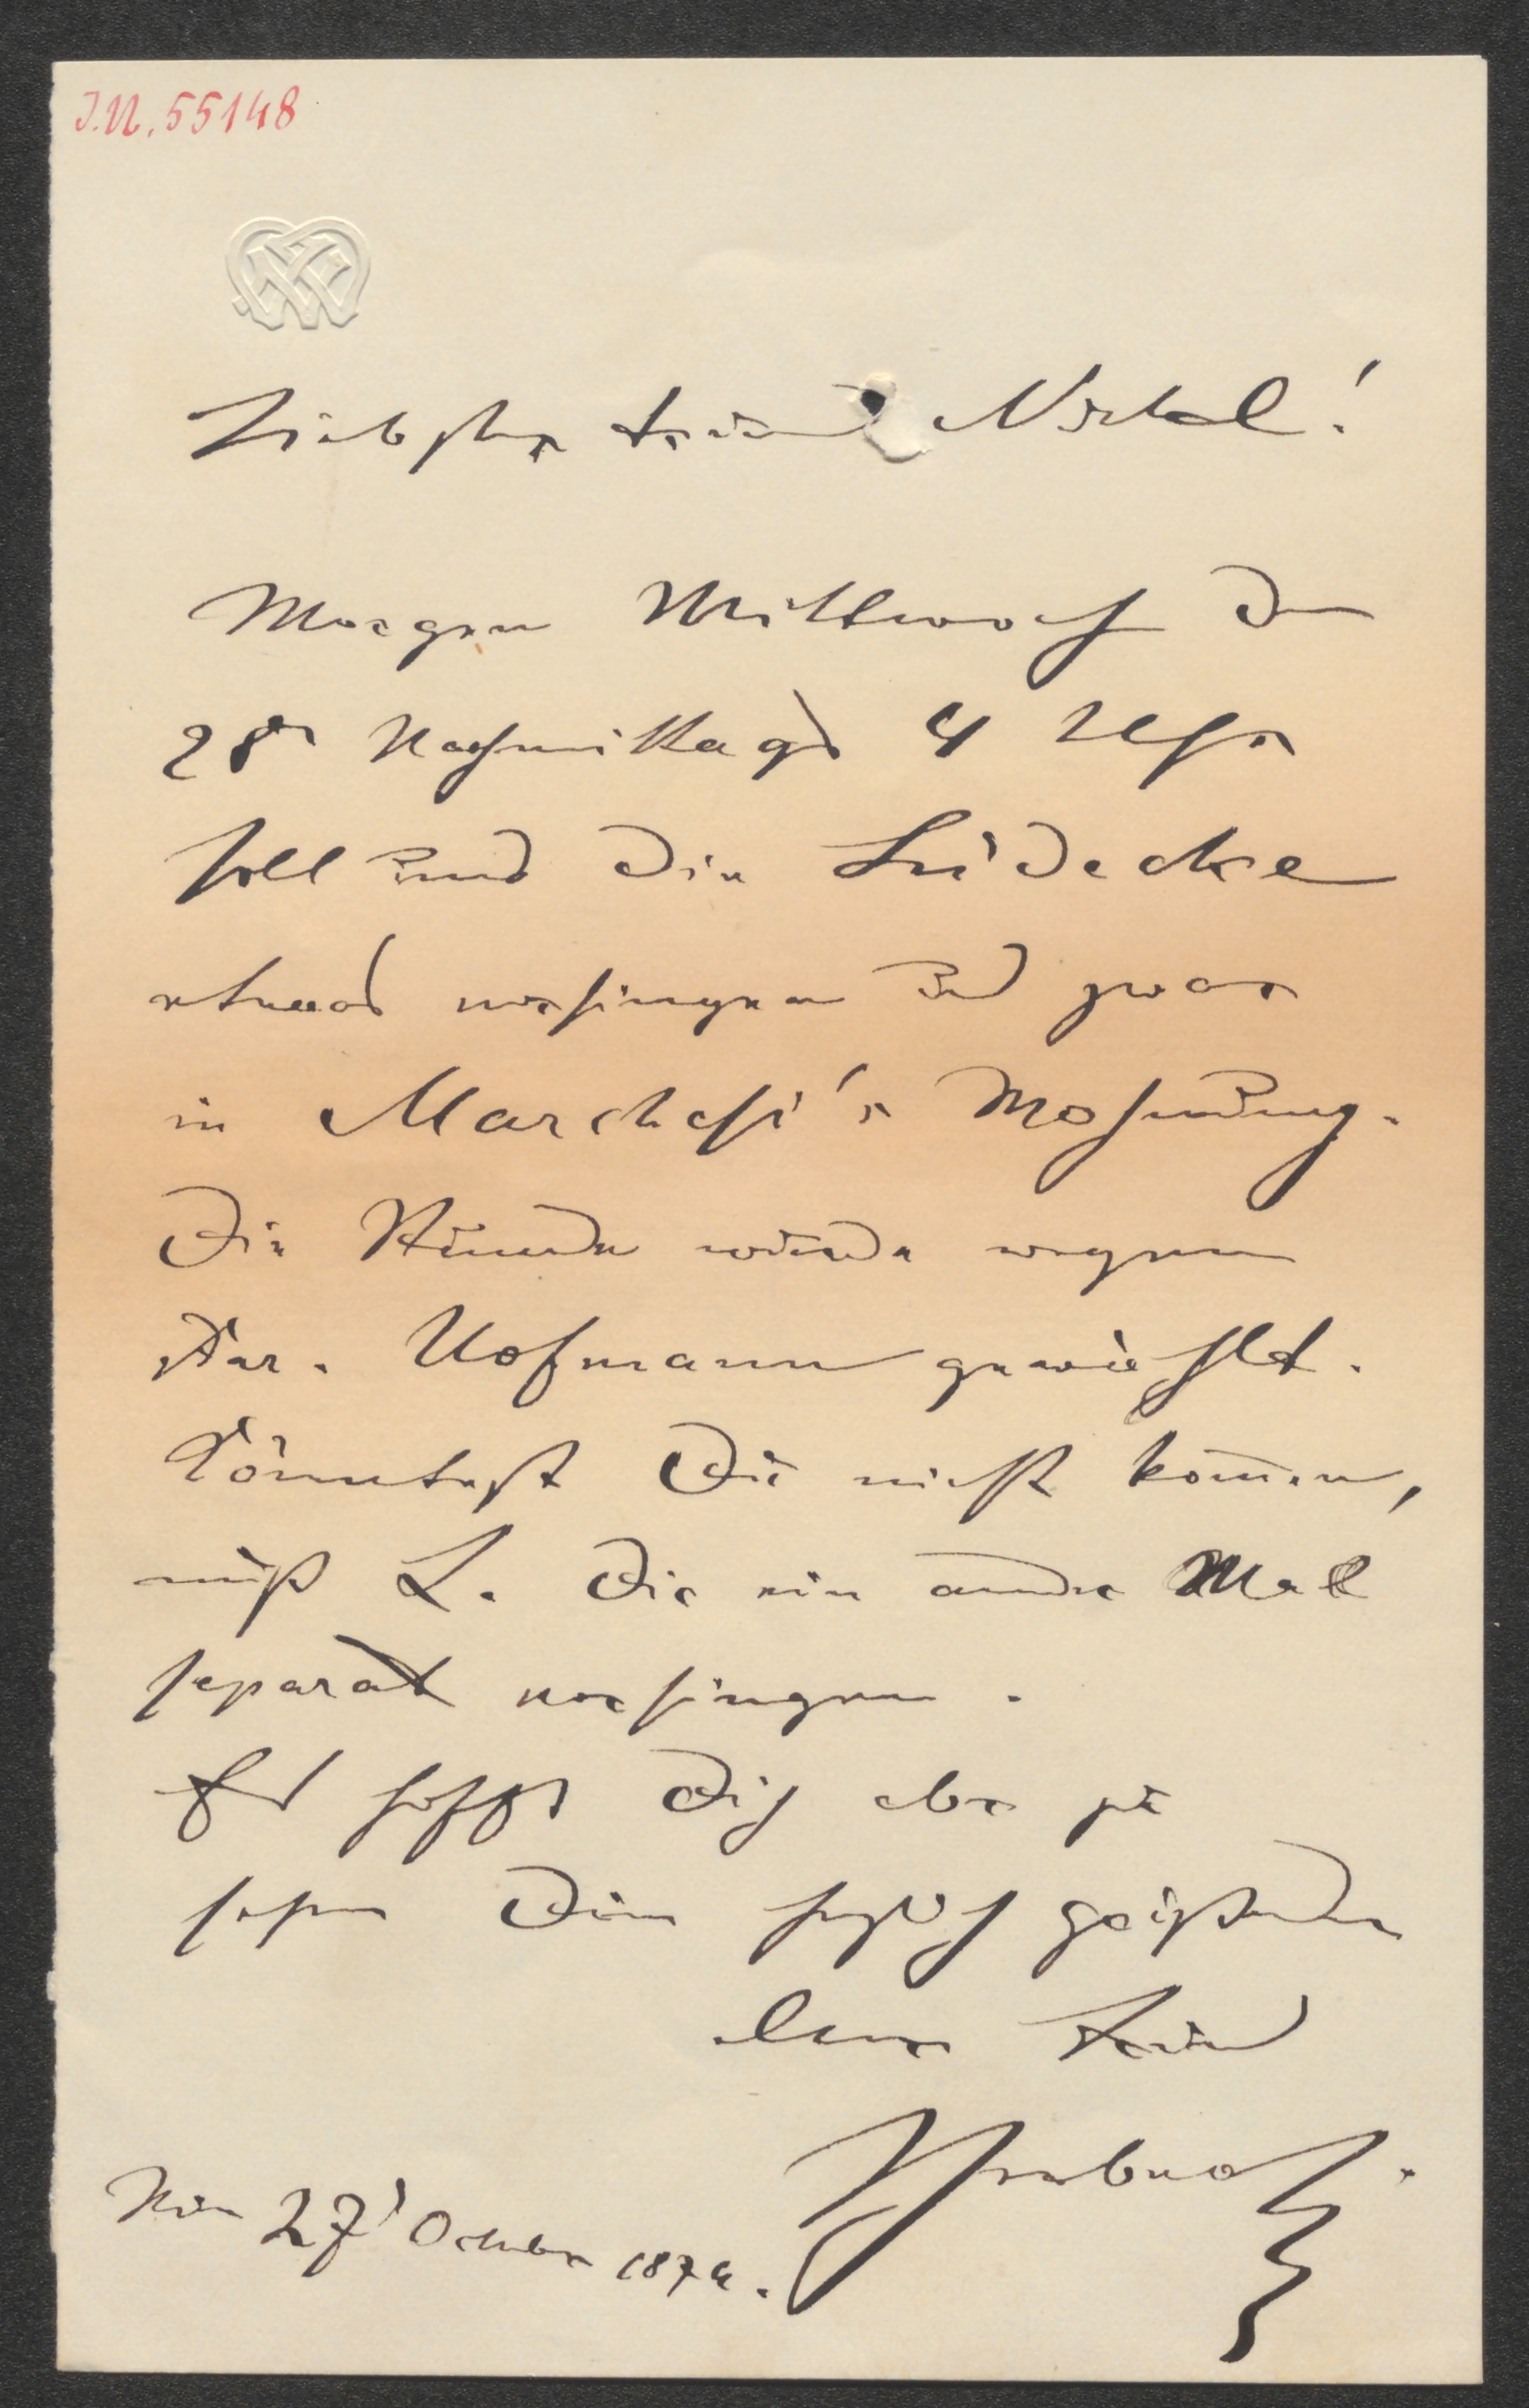 I.N. 55148
Liebster Freund Nickel!
Morgen Mittwoch den
28t Nachmittags 4 Uhr
soll uns die Lüdecke
etwas vorsingen und zwar
in Marchesi's Wohnung.
Die Stunde wurde wegen
Kar. Hofmann gewählt.
Könntest Du nicht kom̄en,
muß L. Dir ein andres Mal
separat vorsingen.
Es hofft Dich aber zu
sehen Dein herzlich grüßender
alter Freund
Herbeck.
Wien 27t October 1874.